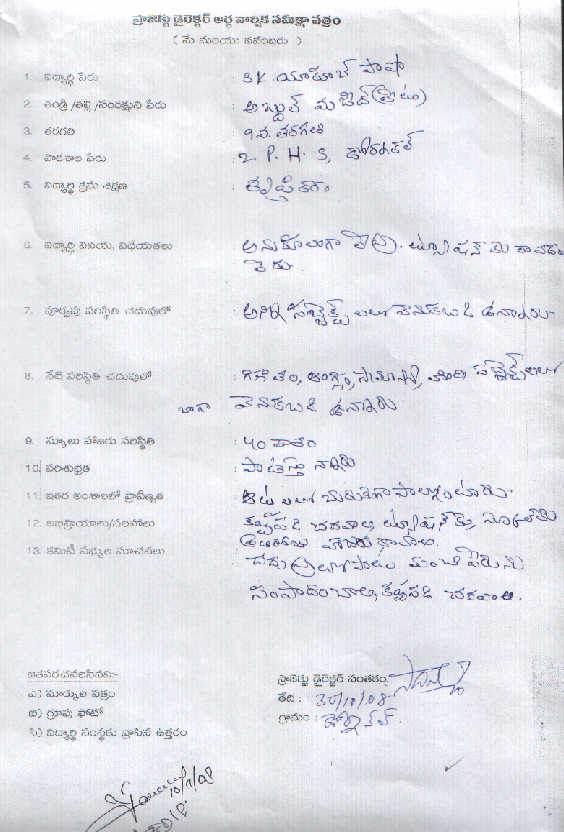 ప్రాజెక్టు డైరెక్టర్ అర్ధ వార్షిక సమీక్షా పత్రం
( మే మరియు నవంబరు )
1. విద్యార్థి పేరు : SK యాకూబ్ పాషా
2. తండ్రి /తల్లి /సంరక్షకుని పేరు : అబ్దుల్ మజీద్
3. తరగతి : 9వ. తరగతి
4. పాఠశాల పేరు : Z. P. H. S,
5. విద్యార్థి క్రమ శిక్షణ : తృప్తికరం
6. విద్యార్థి వినయ, విధేయతలు : అనుకూలంగా లేదు. ట్యూషన్ కు రావడం
లేదు.
7. పూర్వపు పరిస్థితి చదువులో : అన్ని సబ్జెక్ట్స్ లలో వెనుకబడి ఉన్నాడు
8. నేటి పరిస్థితి చదువులో : గణితం, ఇంగ్లీషు, సామాన్య, సబ్జెక్ట్స్ లలో
బాగా వెనుకబడి ఉన్నాడు
9. స్కూలు హాజరు పరిస్థితి : 40 శాతం
10. పరిశుభ్రత : పాటిస్తు న్నాడు
11. ఇతర అంశాలలో ప్రావీణ్యత : ఆటలలో చురుకుగా పాల్గొంటాడు
12. అభిప్రాయాలు/సలహాలు : కష్టపడి చదవాలి, ట్యూషన్ కు, స్కూలుకు
ప్రతిరోజు హాజరు కావాలి.
13. కమిటీ సభ్యుల సూచనలు : చదువులో మంచి పేరును
సంపాదించాలి, కష్టపడి చదవాలి.
జతపరచవలసినవి:-
ఎ) మార్కుల పత్రం
బి) గ్రూపు ఫోటో
సి) విద్యార్థి సంస్థకు వ్రాసిన ఉత్తరం
ప్రాజెక్టు డైరెక్టర్ సంతకం
తేది : 30/10/08
గ్రామం :
10/11/08